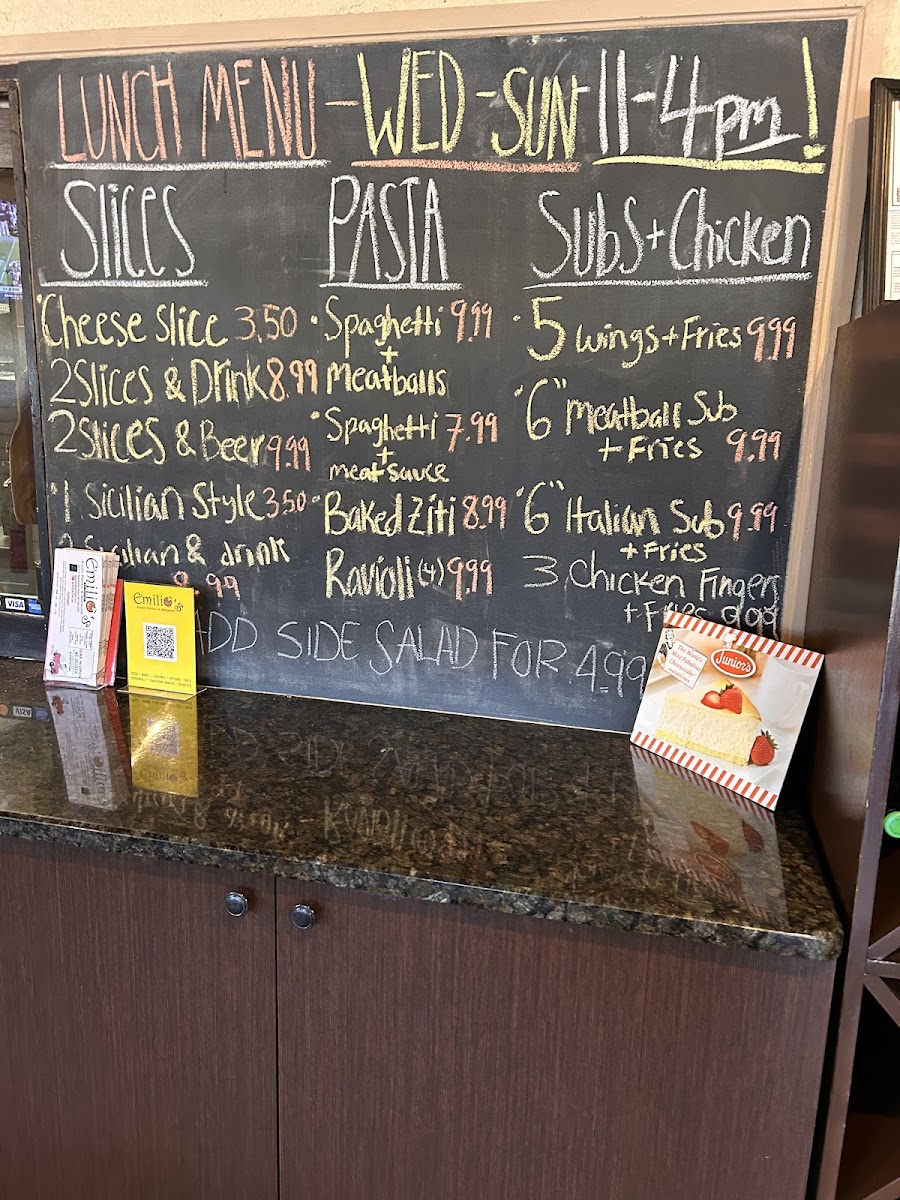 LUNCH MENU - WED - SUN - 11-4pm!
Slices
•Cheese Slice 3.50
2 Slices & Drink 8.99
2 Slices & Beer 9.99
•1 Sicilian Style 3.50
Sicilian & drink
PASTA
•Spaghetti 9.99
+
Meatballs
•Spaghetti 7.99
+
meat sauce
•Baked Ziti 8.99
Ravioli (4) 9.99
Subs + Chicken
•5 wings + Fries 9.99
•6" Meatball Sub
+ Fries 9.99
•6" Italian Sub 9.99
+ Fries
3 Chicken Fingers
+ Fries
DD SIDE SALAD FOR 4.99
emilio's
emilio's
VISA
The World's
Most Fabulous
Cheesecake
Junior's